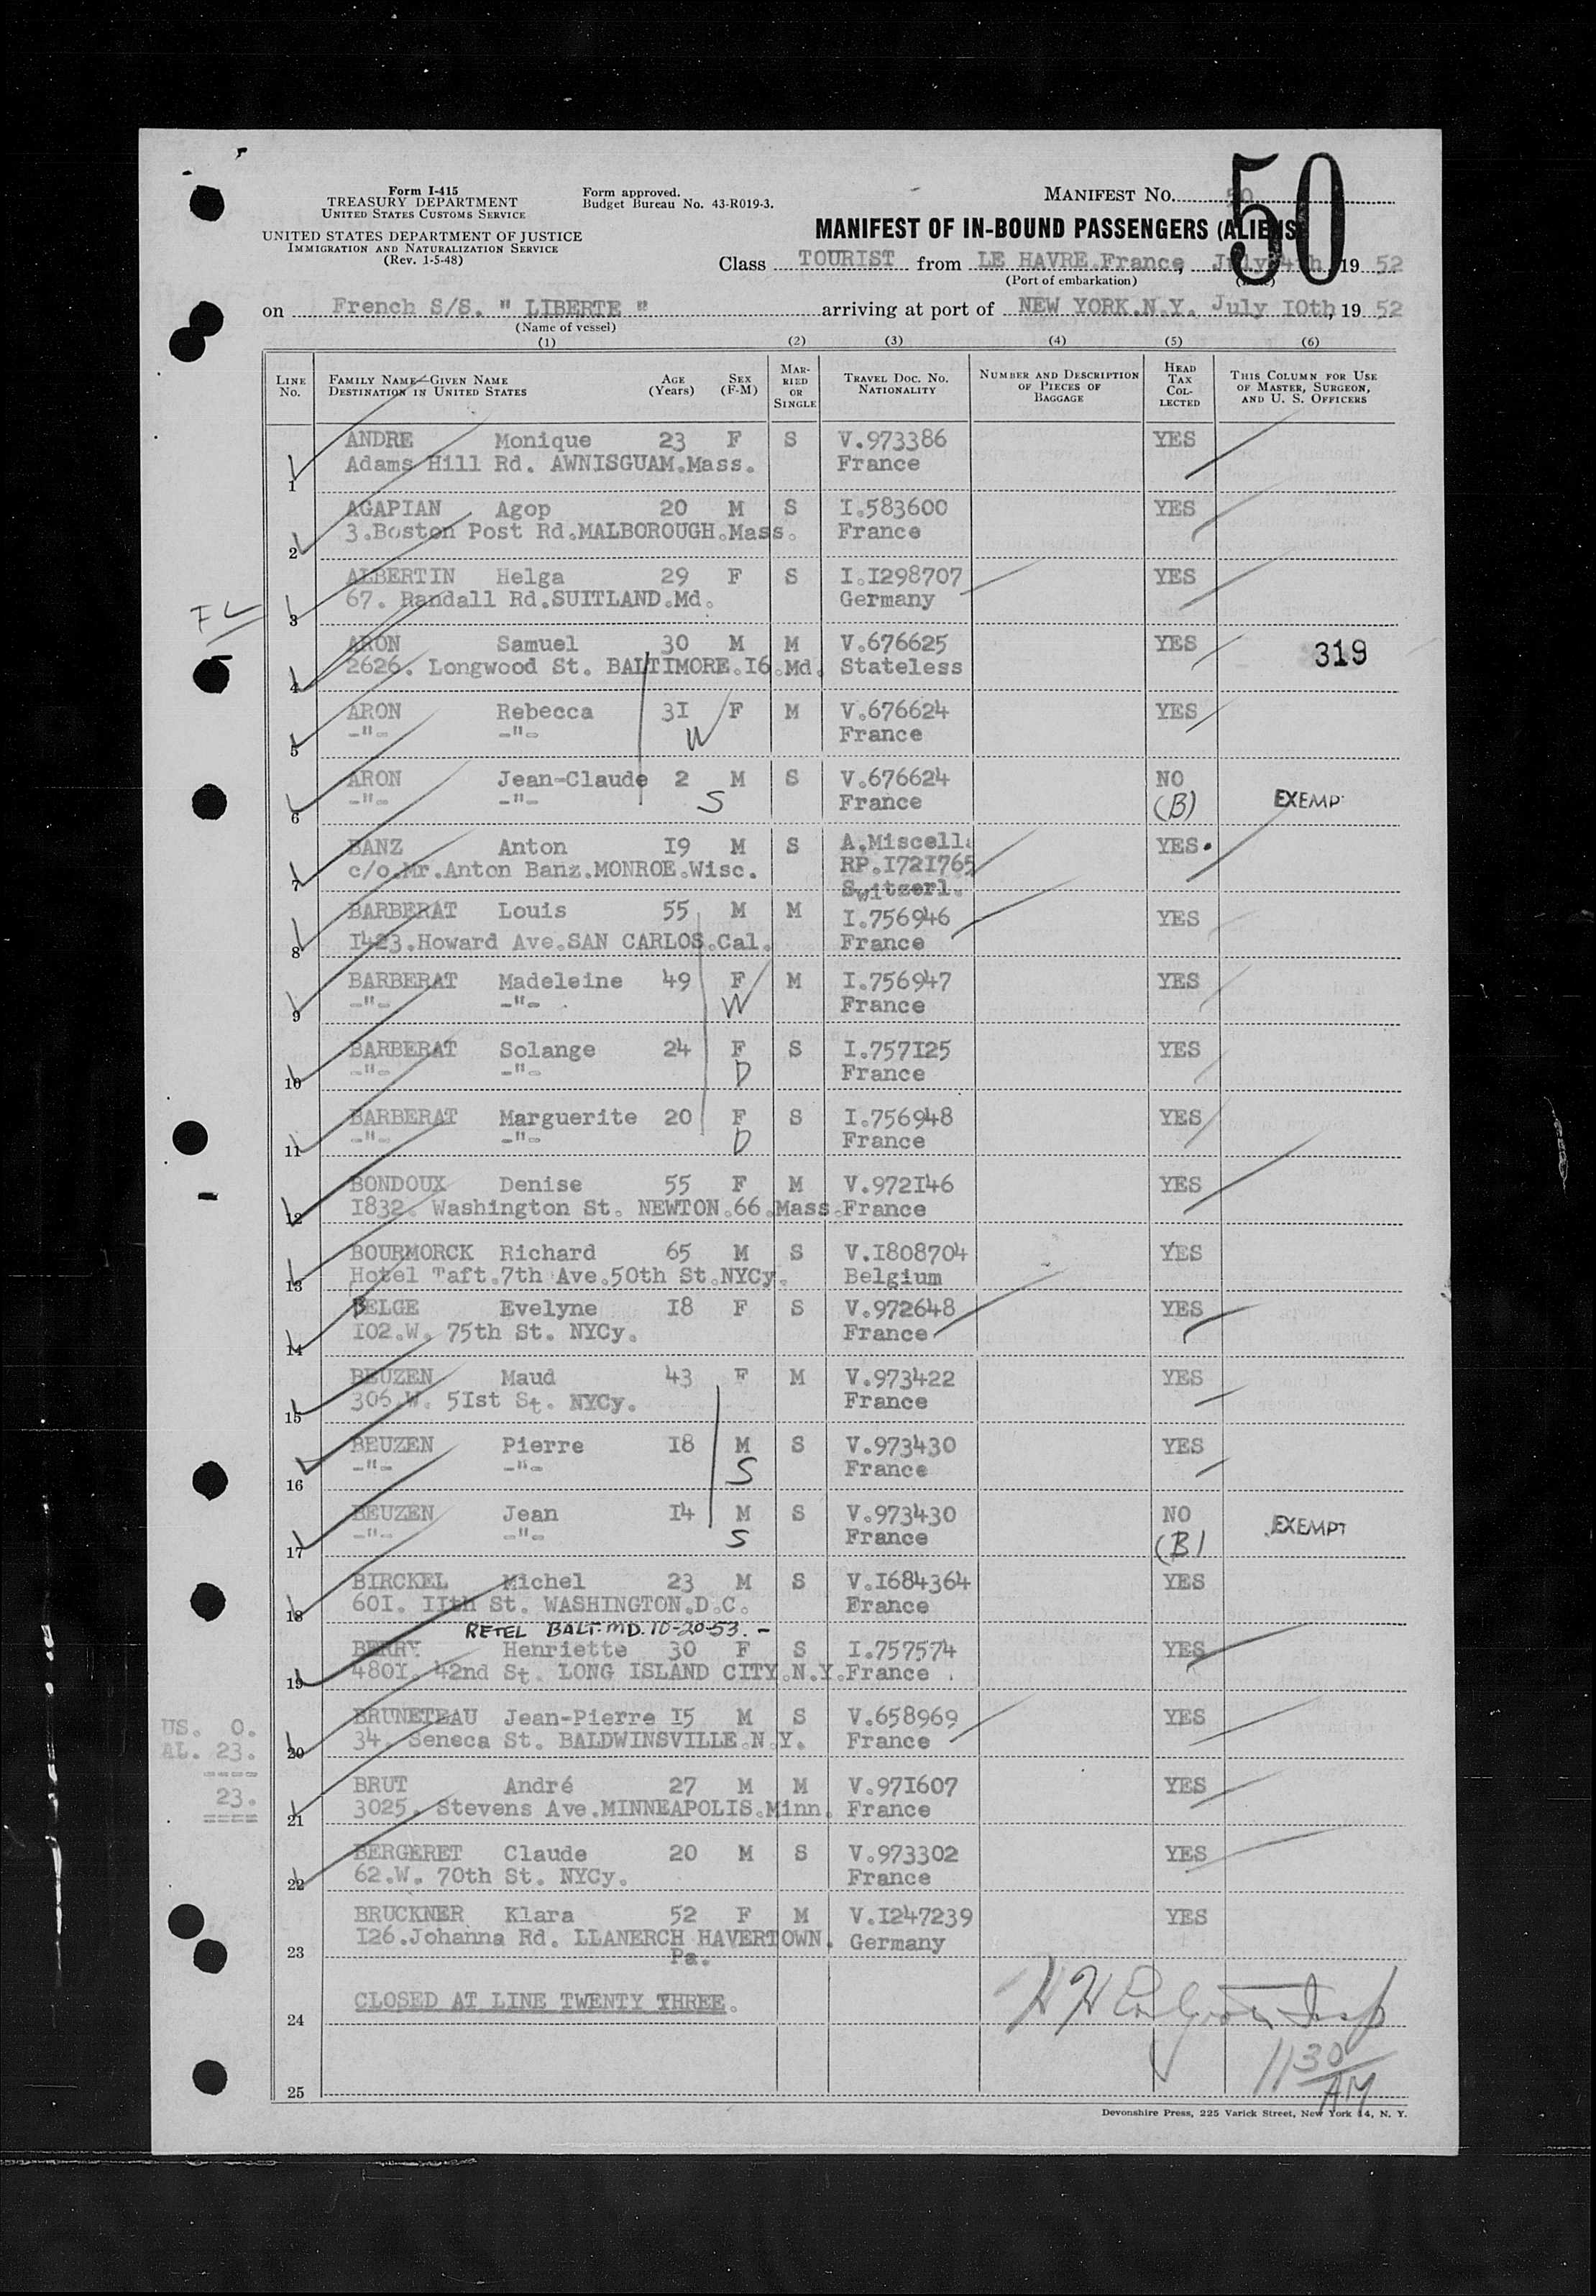 Form I-415
TREASURY DEPARTMENT
UNITED STATES CUSTOMS SERVICE
UNITED STATES DEPARTMENT OF JUSTICE
IMMIGRATION AND NATURALIZATION SERVICE
(Rev. 1-5-48)
Form approved.
Budget Bureau No. 43-R019-3.
MANIFEST NO. 50
50
MANIFEST OF IN-BOUND PASSENGERS (ALIENS)
Class TOURIST from LE HAVRE.France, July 4th, 19 52
(Port of embarkation)
on French S/S. " LIBERTE " arriving at port of NEW YORK.N.Y. July 10th, 19 52
(Name of vessel)
(1) (2) (3) (4) (5) (6)
LINE No. FAMILY NAME—GIVEN NAME DESTINATION IN UNITED STATES AGE (Years) SEX (F-M) MARRIED OR SINGLE TRAVEL DOC. NO. NATIONALITY NUMBER AND DESCRIPTION OF PIECES OF BAGGAGE HEAD TAX COLLECTED THIS COLUMN FOR USE OF MASTER, SURGEON, AND U. S. OFFICERS
ANDRE Monique 23 F S V.973386 YES
1 Adams Hill Rd. AWNISGUAM.Mass. France
AGAPIAN Agop 20 M S I.583600 YES
2 3.Boston Post Rd.MALBOROUGH.Mass. France
ALBERTIN Helga 29 F S I.I298707 YES
3 67. Randall Rd.SUITLAND.Md. Germany
ARON Samuel 30 M M V.676625 YES 319
4 2626. Longwood St. BALTIMORE.I6.Md. Stateless
ARON Rebecca 3I F M V.676624 YES
5 -"- -"- W France
ARON Jean-Claude 2 M S V.676624 NO
6 -"- -"- S France (B) EXEMP
BANZ Anton I9 M S A.Miscell. YES.
7 c/o.Mr.Anton Banz.MONROE.Wisc. RP.I72I765
Switzerl.
BARBERAT Louis 55 M M I.756946 YES
8 I423.Howard Ave.SAN CARLOS.Cal. France
BARBERAT Madeleine 49 F M I.756947 YES
9 -"- -"- W France
BARBERAT Solange 24 F S I.757I25 YES
10 -"- -"- D France
BARBERAT Marguerite 20 F S I.756948 YES
11 -"- -"- D France
BONDOUX Denise 55 F M V.972I46 YES
12 I832. Washington St. NEWTON.66.Mass.France
BOURMORCK Richard 65 M S V.I808704 YES
13 Hotel Taft.7th Ave.50th St.NYCy. Belgium
BELGE Evelyne I8 F S V.972648 YES
14 I02.W. 75th St. NYCy. France
BEUZEN Maud 43 F M V.973422 YES
15 306.W. 5Ist St. NYCy. France
BEUZEN Pierre I8 M S V.973430 YES
16 -"- -"- S France
BEUZEN Jean I4 M S V.973430 NO
17 -"- -"- S France (B) EXEMPT
BIRCKEL Michel 23 M S V.I684364 YES
18 60I. IIth St. WASHINGTON.D.C. France
RETEL BALT. MD. 10-20-53. -
BERRY Henriette 30 F S I.757574 YES
19 480I. 42nd St. LONG ISLAND CITY.N.Y.France .
BRUNETEAU Jean-Pierre I5 M S V.658969 YES
20 34. Seneca St. BALDWINSVILLE.N.Y. France
US. 0.
AL. 23.
----
23.
====
BRUT André 27 M M V.97I607 YES
21 3025. Stevens Ave.MINNEAPOLIS.Minn. France
BERGERET Claude 20 M S V.973302 YES
22 62.W. 70th St. NYCy. France
BRUCKNER Klara 52 F M V.I247239 YES
23 I26.Johanna Rd. LLANERCH HAVERTOWN. Germany
Pa.
24 CLOSED AT LINE TWENTY THREE.
Insp
11 30
AM
25
Devonshire Press, 225 Varick Street, New York 14, N. Y.